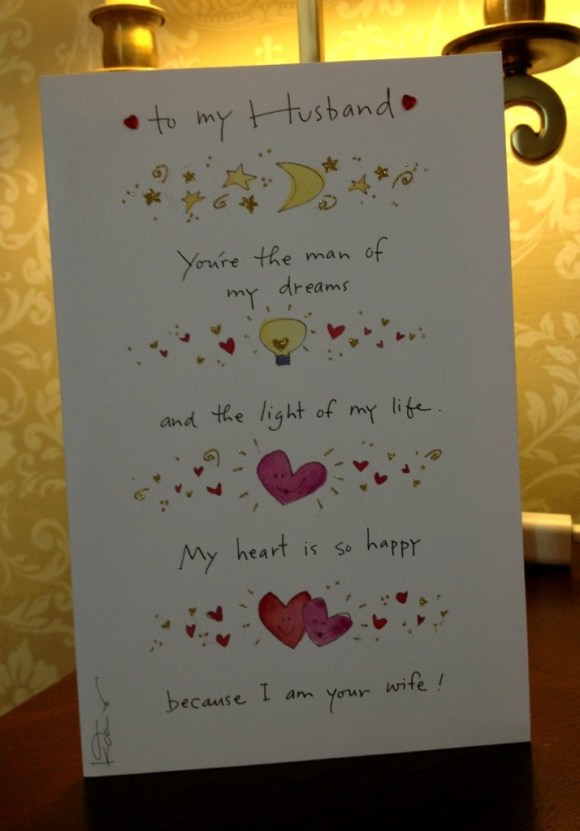 to my Husband
You're the man of
my dreams
and the light of my life.
My heart is so happy
because I am your wife!